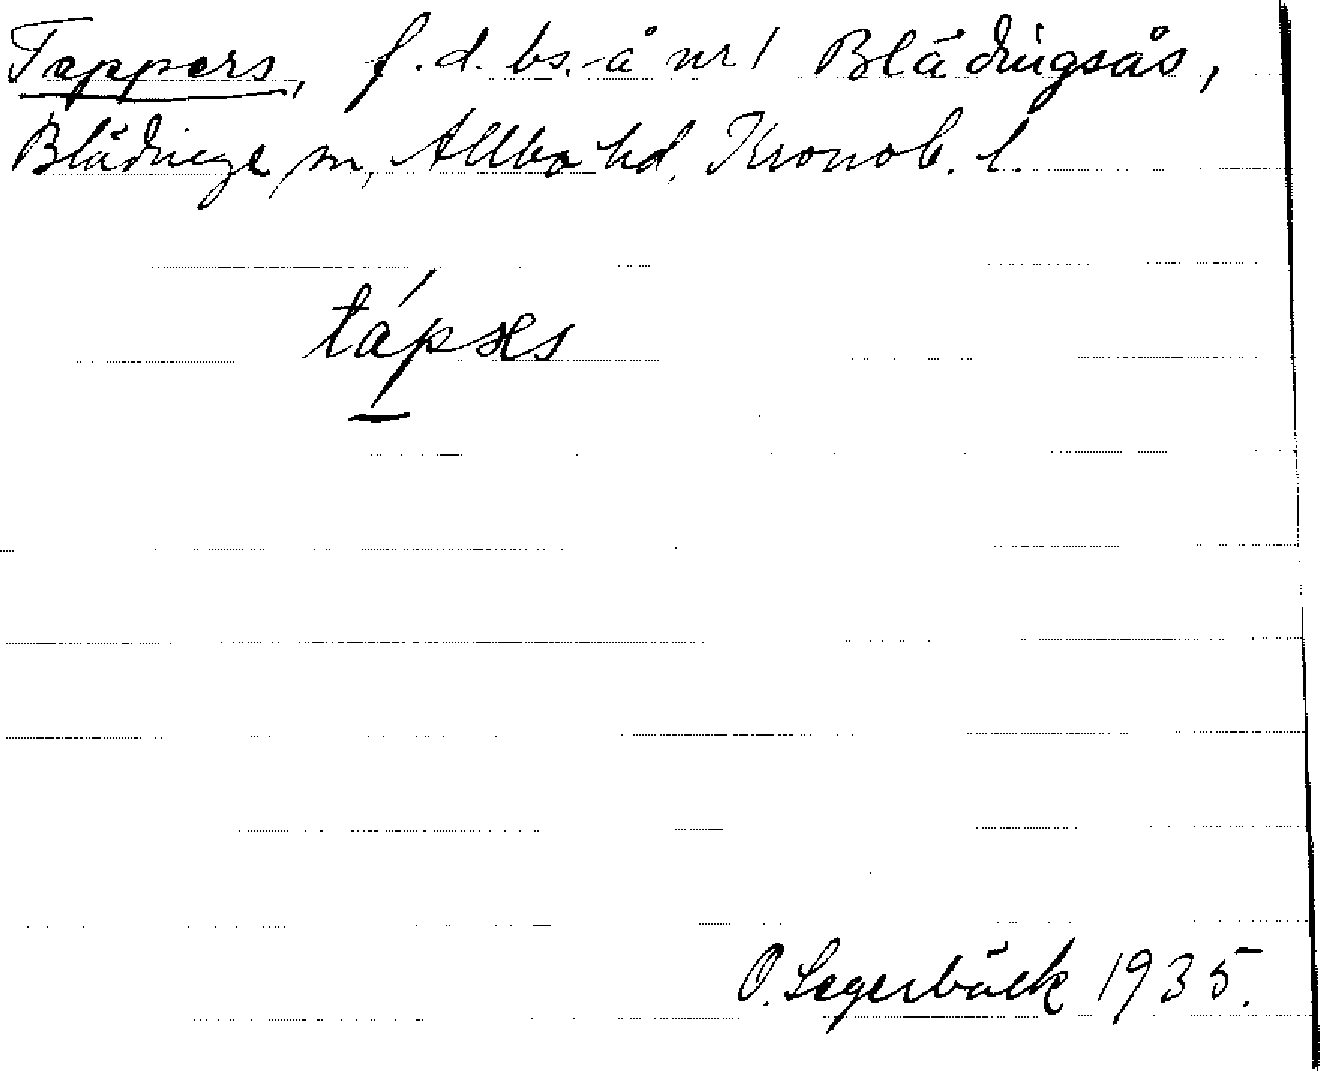 Tappers, f.d. bs. å nr 1 Blädingsås,
Blädinge sn, Allbo hd, Kronob. l.
tápses
O. Lagerbäck 1935.